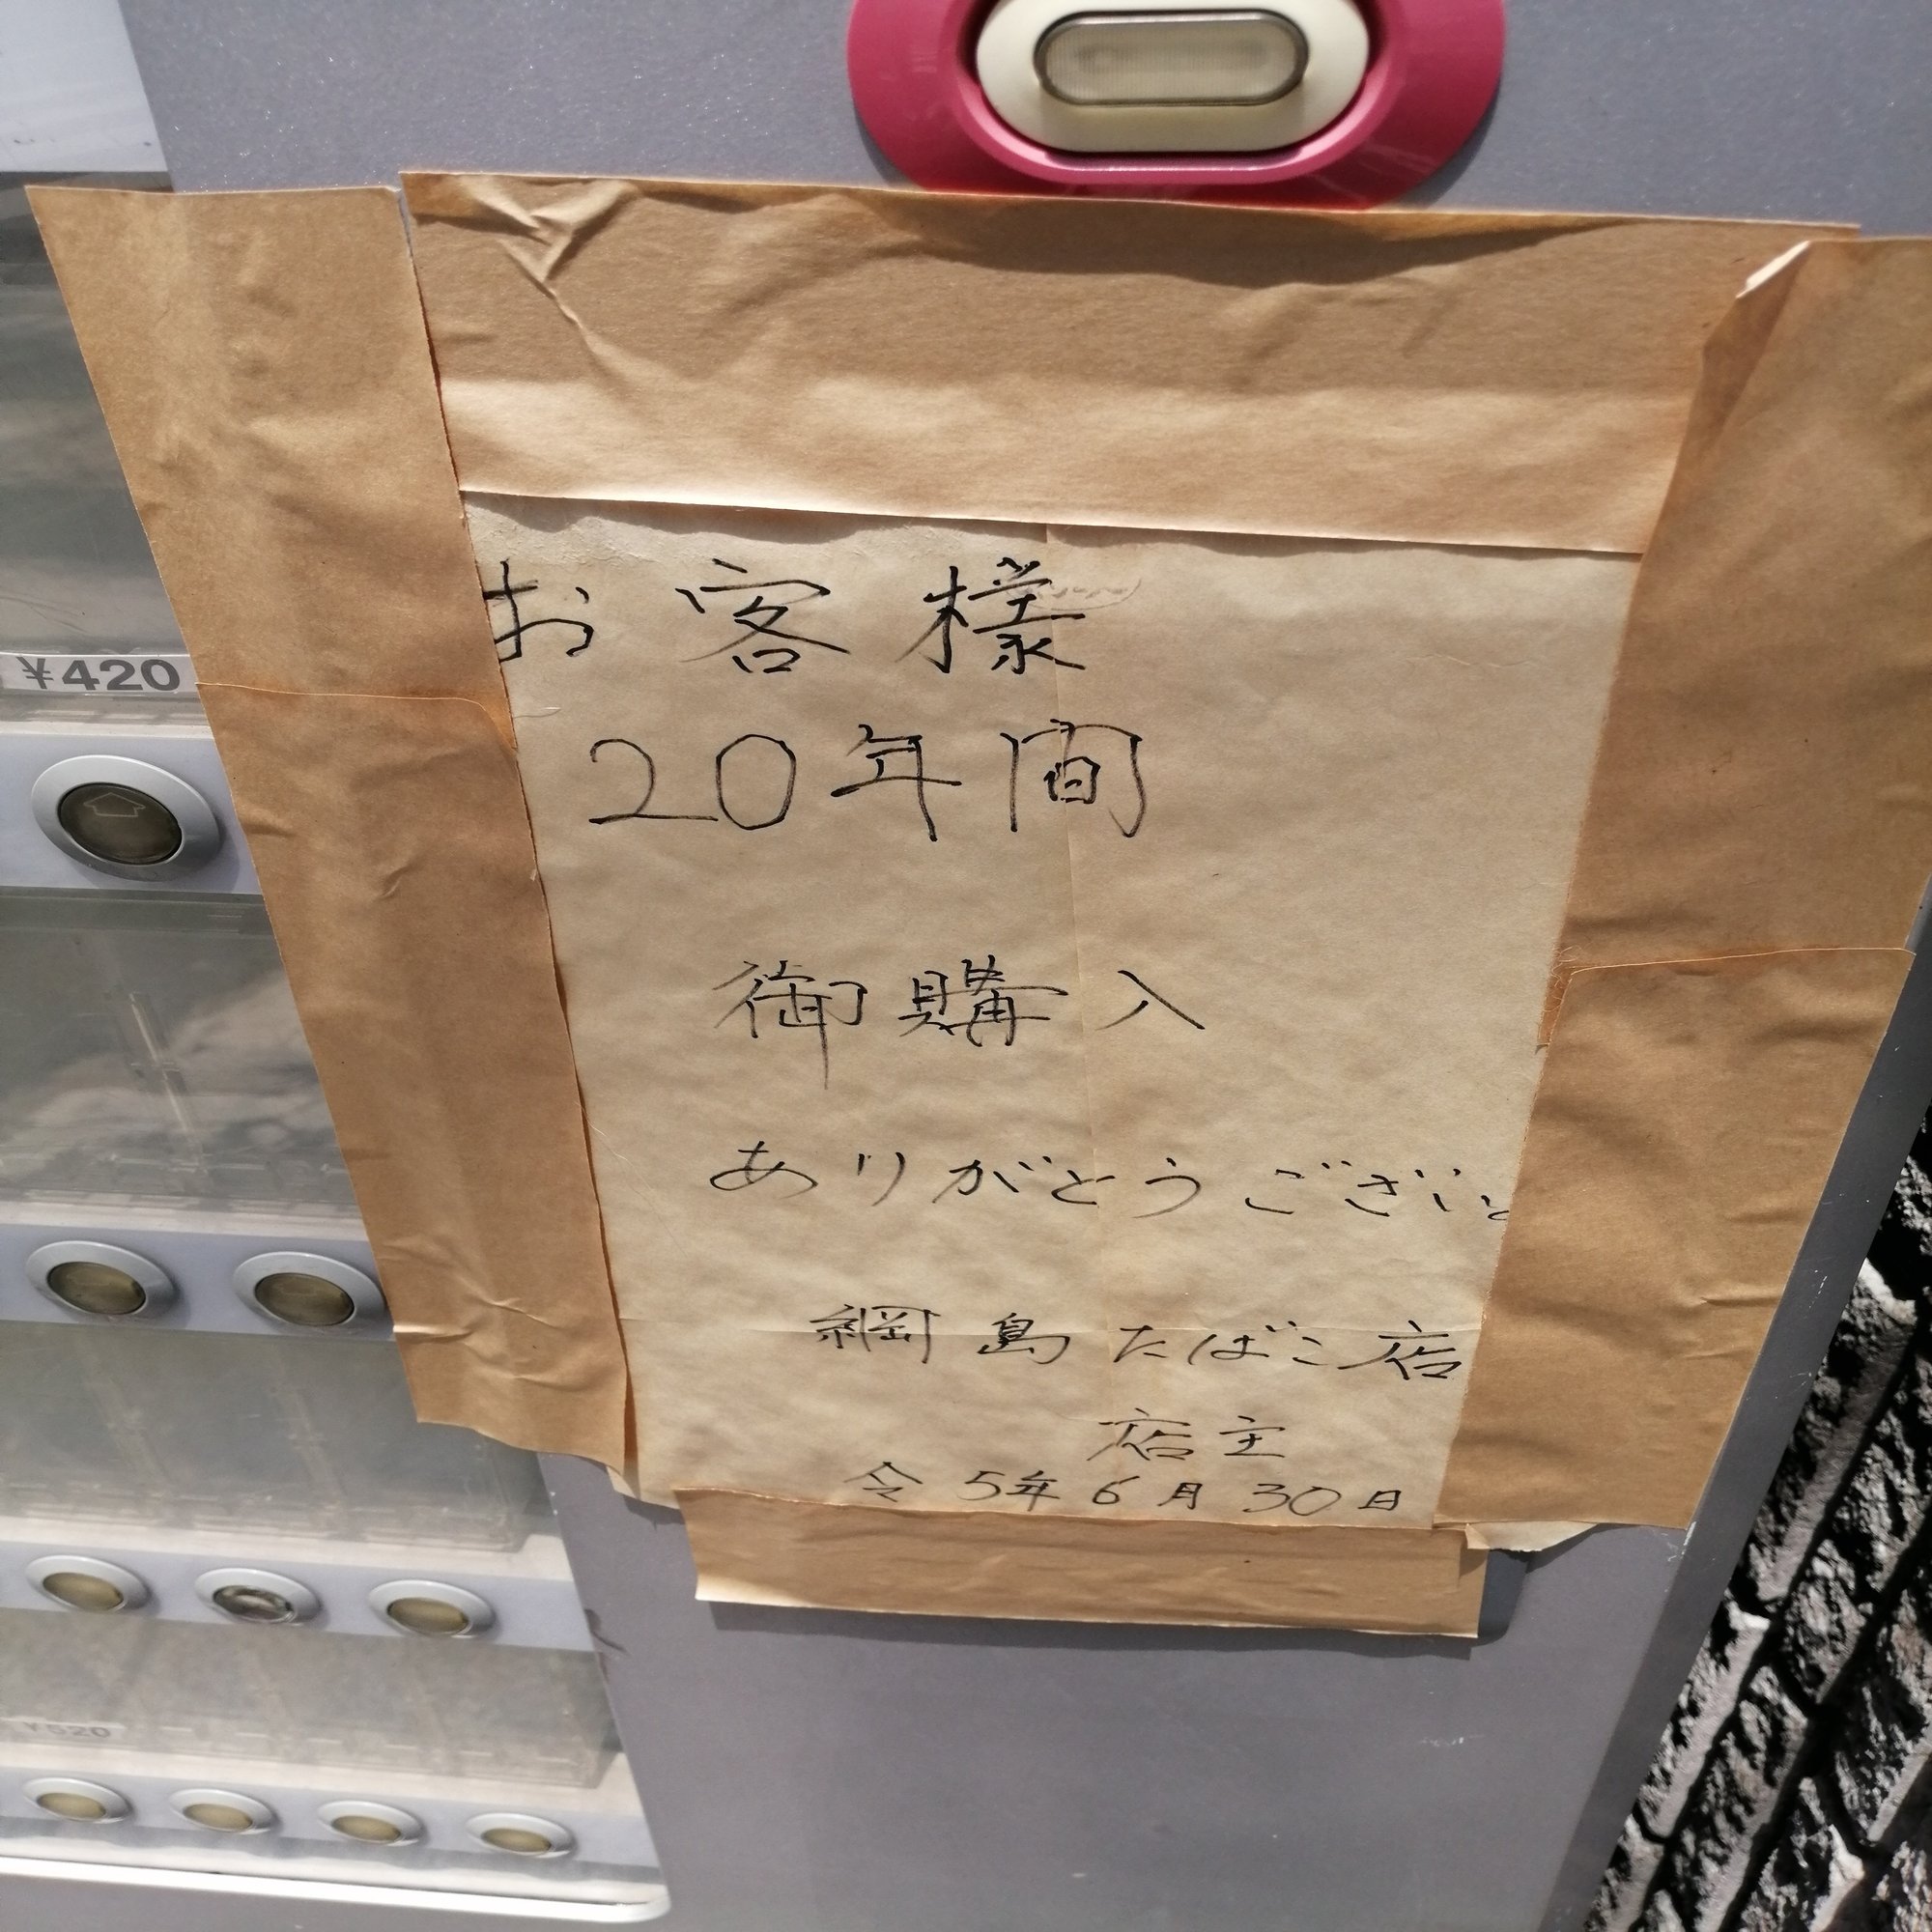 お客様
20年間
御購入
ありがとうござい
綱島たばこ店
店主
令5年6月30日
¥420
¥520